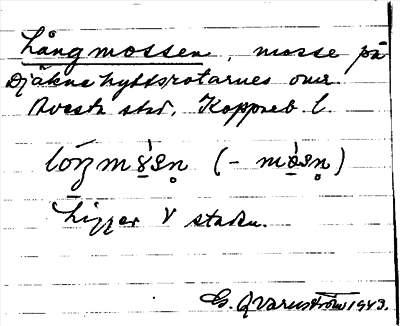 Långmossen, mosse på
Djäknehyttsrotarnes omr.
Avesta skd, Kopparb l.
lóŋmɤ̀sn̥ (- mòsn̥)
Ligger V staden.
G. Qvarnström 1943.